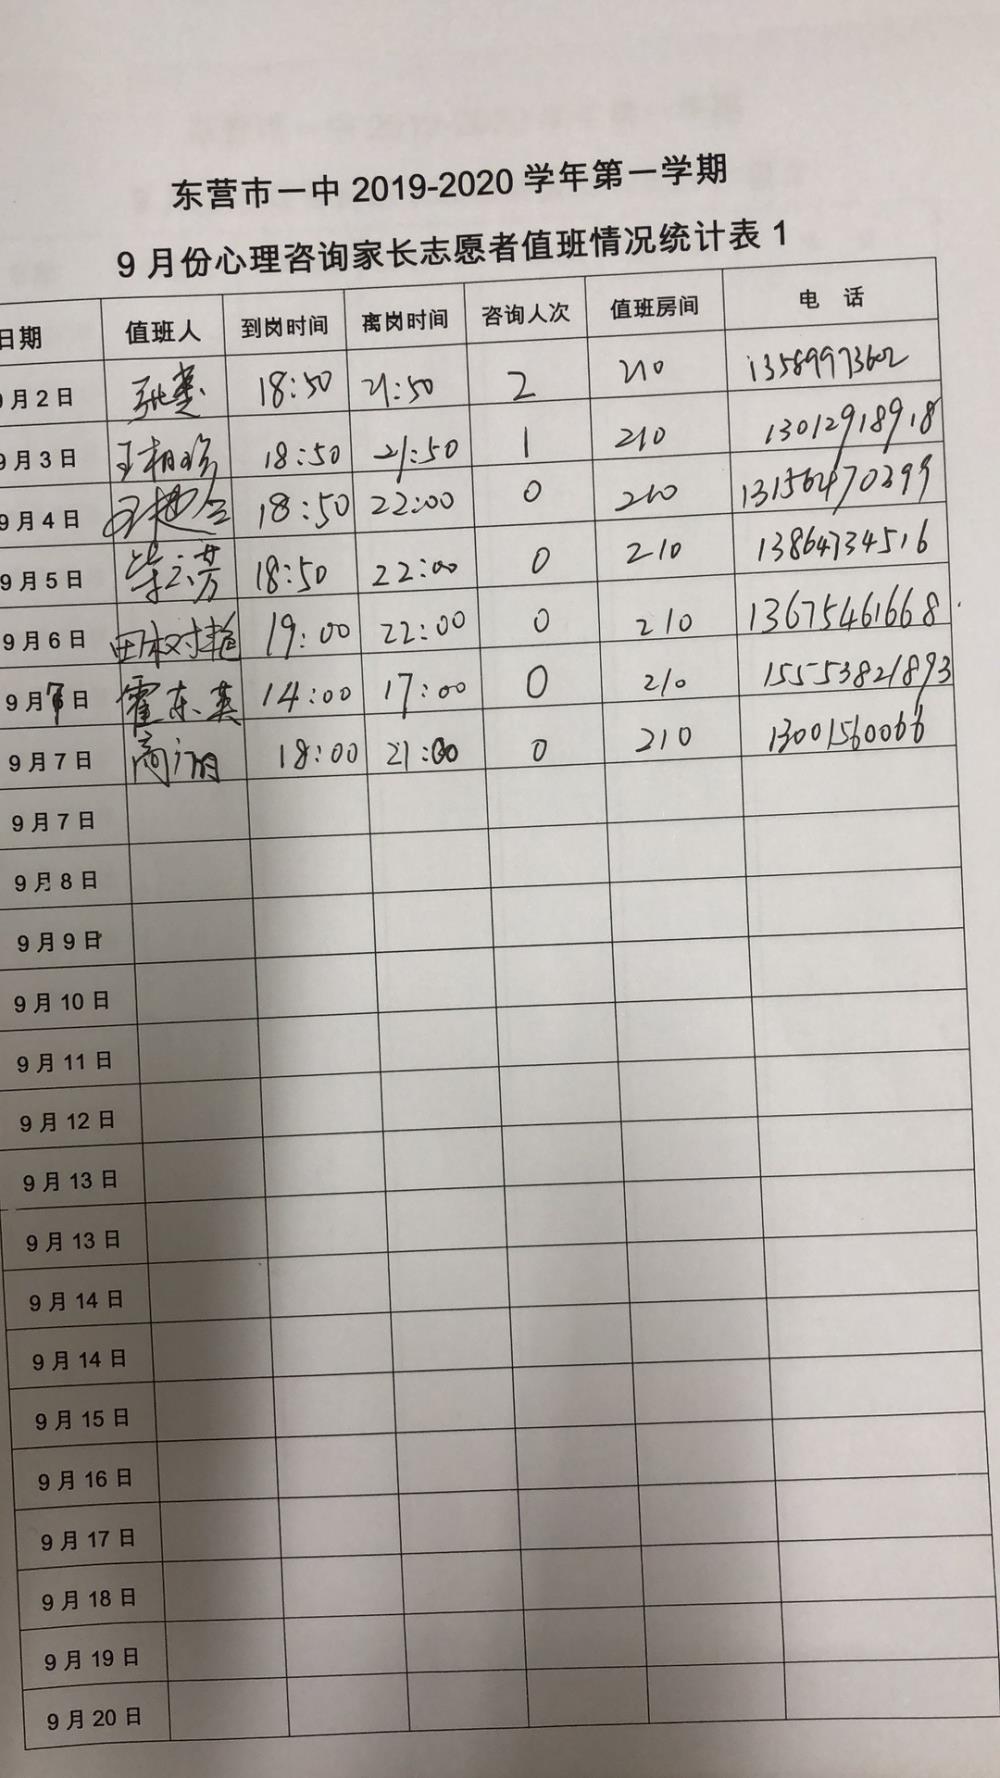 东营市一中 2019-2020 学年第一学期
9 月份心理咨询家长志愿者值班情况统计表 1
日期 值班人 到岗时间 离岗时间 咨询人次 值班房间 电 话
9月2日 18:50 21:50 2 210 13589973602
9月3日 18:50 21:50 1 210 13012918918
9月4日 18:50 22:00 0 210
9月5日 18:50 22:00 0 210 13864734516
9月6日 19:00 22:00 0 210 13675461668
9月7日 霍东英 14:00 17:00 0 210 15553821893
9月7日 18:00 21:00 0 210 13001560066
9月7日
9月8日
9月9日
9月10日
9月11日
9月12日
9月13日
9月13日
9月14日
9月14日
9月15日
9月16日
9月17日
9月18日
9月19日
9月20日